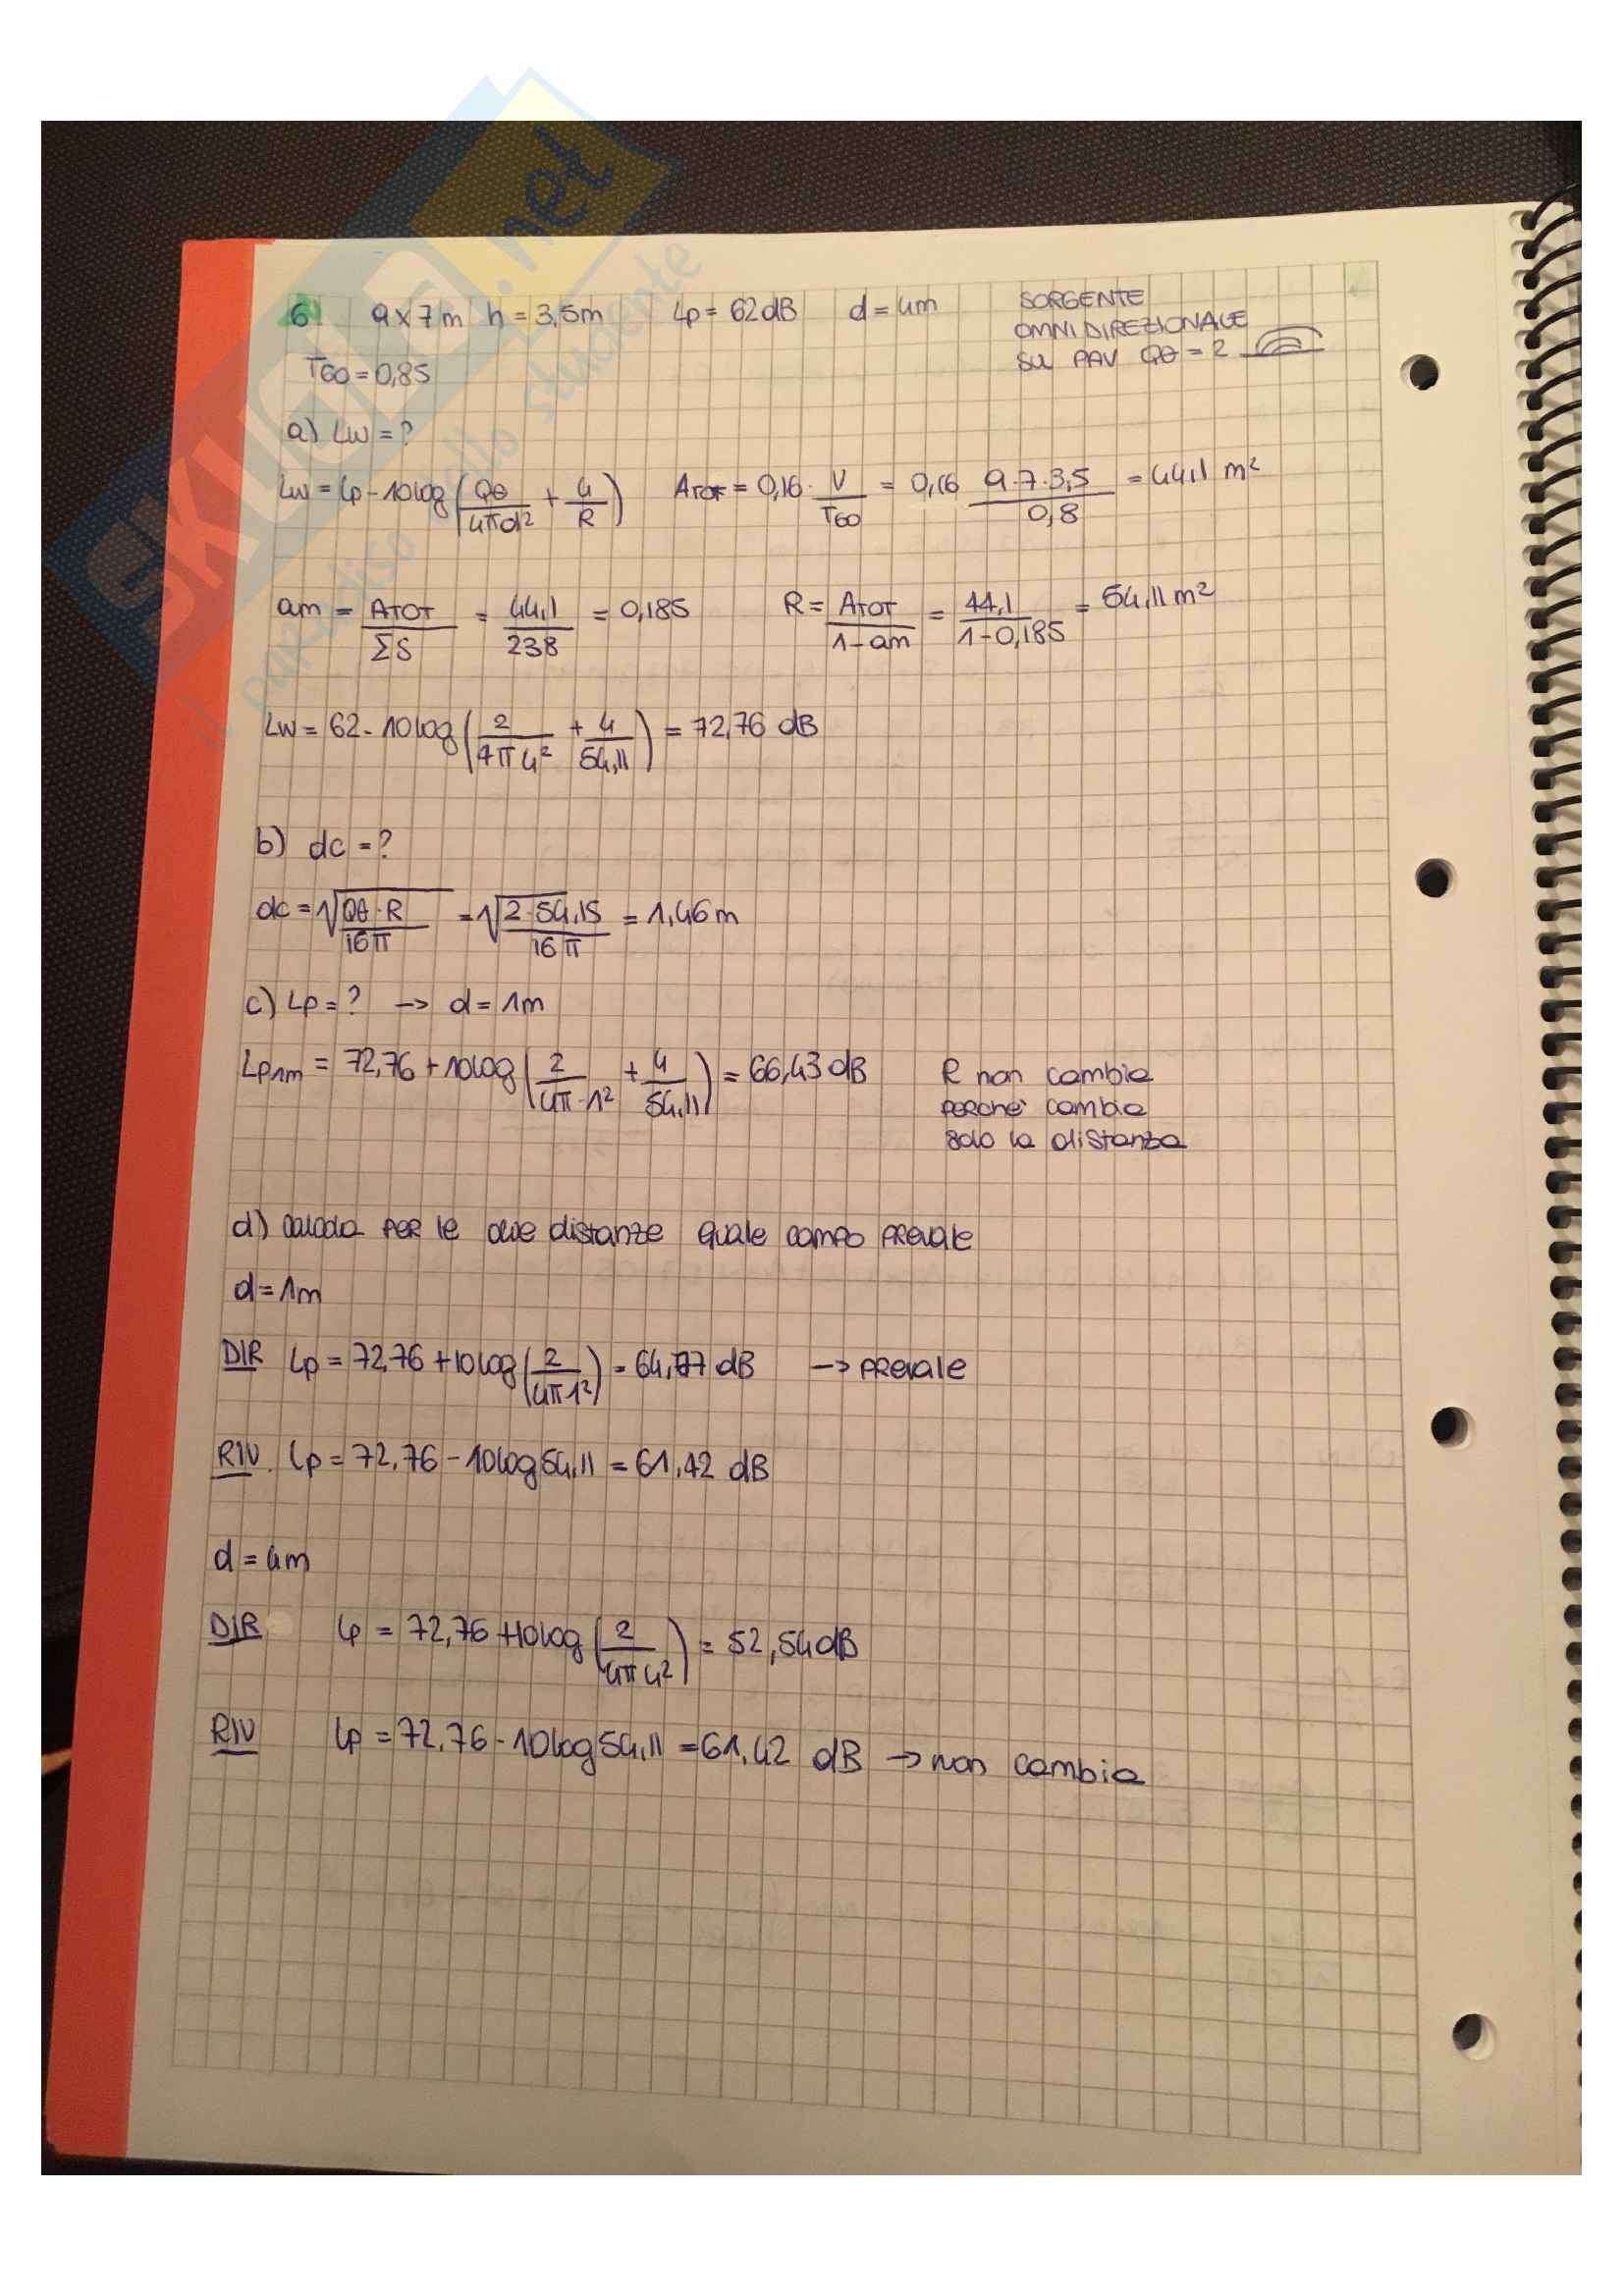 SKUOLA.net
il paradiso dello studente
6) 9x7m h = 3,5m Lp = 62dB d = 4m SORGENTE
OMNIDIREZIONALE
SUL PAV Qθ = 2
T60 = 0,8s
a) Lw = ?
Lw = Lp - 10log(Qθ/4πd² + 4/R) ATOT = 0,16 · V/T60 = 0,16 9·7·3,5/0,8 = 44,1 m²
am = ATOT/ΣS = 44,1/238 = 0,185 R = ATOT/1-am = 44,1/1-0,185 = 54,11 m²
Lw = 62 - 10log(2/4π4² + 4/54,11) = 72,76 dB
b) dc = ?
dc = √Qθ·R/16π = √2·54,15/16π = 1,46m
c) Lp = ? → d = 1m
Lp1m = 72,76 + 10log(2/4π·1² + 4/54,11) = 66,43 dB R non cambia
perchè cambia
solo la distanza
d) calcola per le due distanze quale campo prevale
d = 1m
DIR Lp = 72,76 + 10log(2/4π1²) = 64,77 dB → prevale
RIV. Lp = 72,76 - 10log54,11 = 61,42 dB
d = 4m
DIR Lp = 72,76 + 10log(2/4π4²) = 52,54 dB
RIV Lp = 72,76 - 10log54,11 = 61,42 dB → non cambia